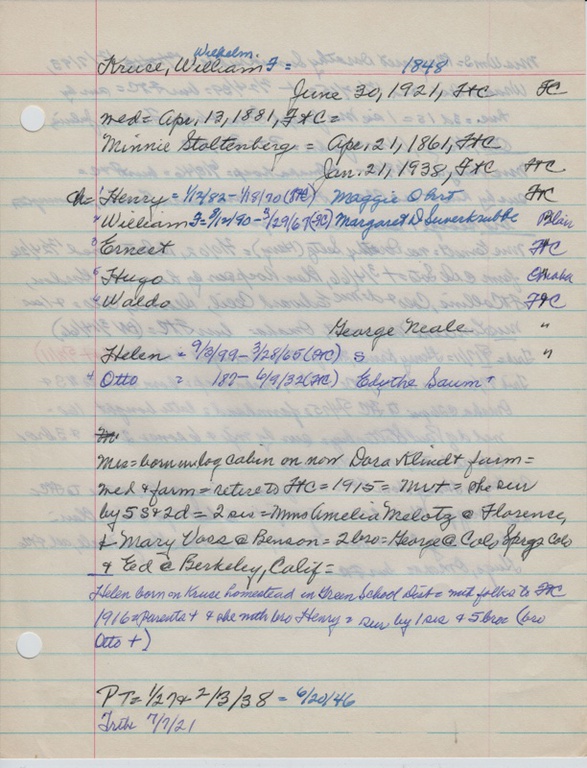 Wilhelm.
Kruse, William F = 1848
June 30, 1921, FtC FC
med = Apr. 13, 1881, FtC =
Minnie Stoltenberg = Apr. 21, 1861, FtC
Jan. 21, 1938, FtC FtC
Ch = 1 Henry = 1/12/82 - 1/18/70 (FtC) Maggie Ohrt FtC
2 William F = 5/12/90 - 3/29/67 (FC) Margaret D Suverkrubbe Blair
3 Ernest FtC
5 Hugo Omaha
6 Waldo FtC
George Neale "
Helen = 9/3/99 - 3/28/65 (FtC) S "
4 Otto = 187 - 6/9/32 (FtC) Edythe Saum +
Mrs = born in log cabin on now Dora Klindt farm =
med & farm = retire to FtC = 1915 = Mr + = she sur
by 5 S & 2 d = 2 sis = Mmes Amelia Melotz @ Florence,
& Mary Voss @ Benson = 2 bro = George @ Colo Sprgs Colo
& Ed @ Berkeley, Calif =
Helen born on Kruse homestead in Green School Dist = mvd folks to FtC
1916 = Parents + & she mth bro Henry = sur by 1 sis & 5 bros (bro
Otto +)
PT = 1/27 & 2/3/38 = 6/20/46
Trib 7/7/21